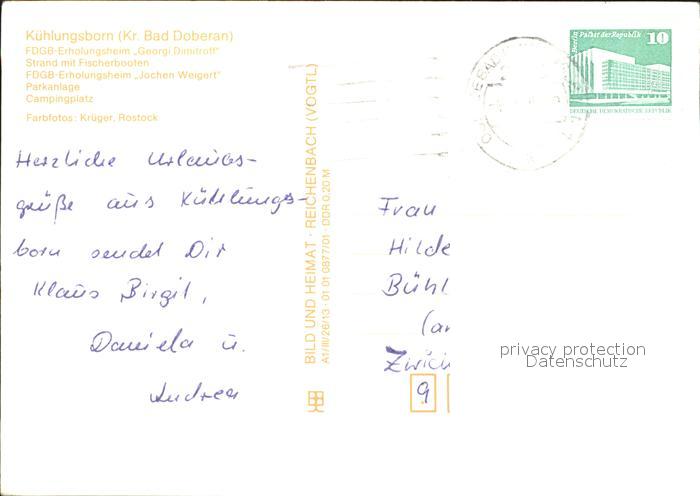 Kühlungsborn (Kr. Bad Doberan)
FDGB-Erholungsheim „Georgi Dimitroff"
Strand mit Fischerbooten
FDGB-Erholungsheim „Jochen Weigert"
Parkanlage
Campingplatz
Farbfotos: Krüger, Rostock
Herzliche Urlaubs-
grüße aus Kühlungs-
born sendet Dir
Klaus Birgit,
Daniela u.
Andrea
BILD UND HEIMAT · REICHENBACH (VOGTL)
A1/III/26/13 · 01 01 0877/01 · DDR 0,20 M
Berlin Palast der Republik 10
DEUTSCHE DEMOKRATISCHE REPUBLIK
Frau
Hilde
Bühl
(an
Zwick
9
privacy protection
Datenschutz